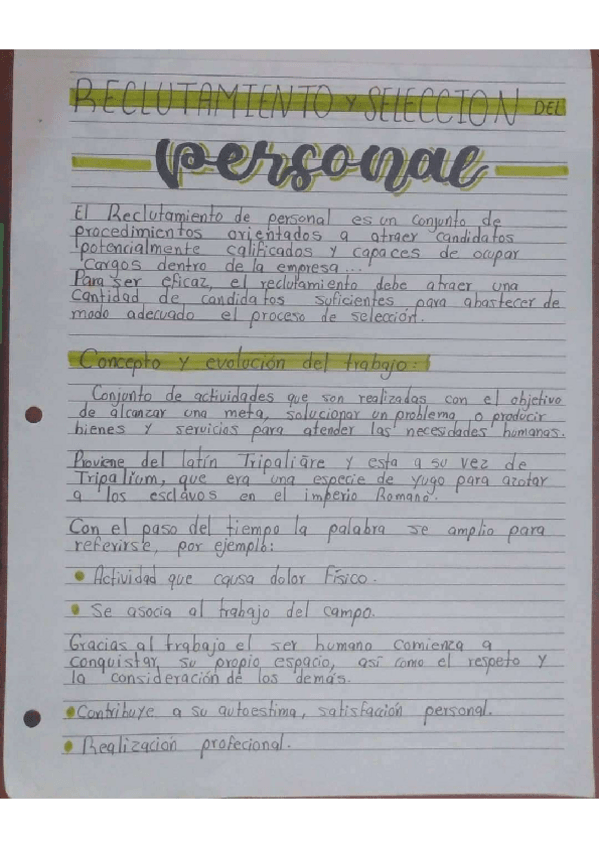 RECLUTAMIENTO Y SELECCION DEL
personal
El Reclutamiento de personal es un conjunto de
procedimientos orientados a atraer candidatos
potencialmente calificados y capaces de ocupar
cargos dentro de la empresa...
Para ser eficaz, el reclutamiento debe atraer una
cantidad de candidatos suficientes para abastecer de
modo adecuado el proceso de selección.
Concepto y evolución del trabajo:
Conjunto de actividades que son realizadas con el objetivo
de alcanzar una meta, solucionar un problema o producir
bienes y servicios para atender las necesidades humanas.
Proviene del latín Tripaliāre y esta a su vez de
Tripalium, que era una especie de yugo para azotar
a los esclavos en el imperio Romano.
Con el paso del tiempo la palabra se amplio para
referirse, por ejemplo:
• Actividad que causa dolor Físico.
• Se asocia al trabajo del campo.
Gracias al trabajo el ser humano comienza a
conquistar su propio espacio, así como el respeto y
la consideración de los demás.
• Contribuye a su autoestima, satisfacción personal.
• Realización profecional.